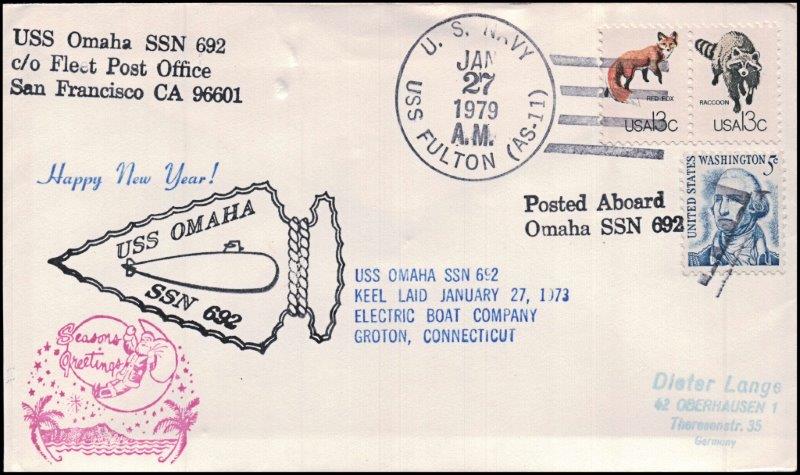 USS Omaha SSN 692
c/o Fleet Post Office
San Francisco CA 96601
U. S. NAVY
JAN
27
1979
A.M.
USS FULTON (AS-11)
RED FOX
USA13c
RACCOON
USA13c
UNITED STATES
WASHINGTON 5c
Happy New Year!
Posted Aboard
Omaha SSN 692
USS OMAHA
SSN 692
USS OMAHA SSN 692
KEEL LAID JANUARY 27, 1973
ELECTRIC BOAT COMPANY
GROTON, CONNECTICUT
Seasons
Greetings
Dieter Lange
42 OBERHAUSEN 1
Theresenstr. 35
Germany